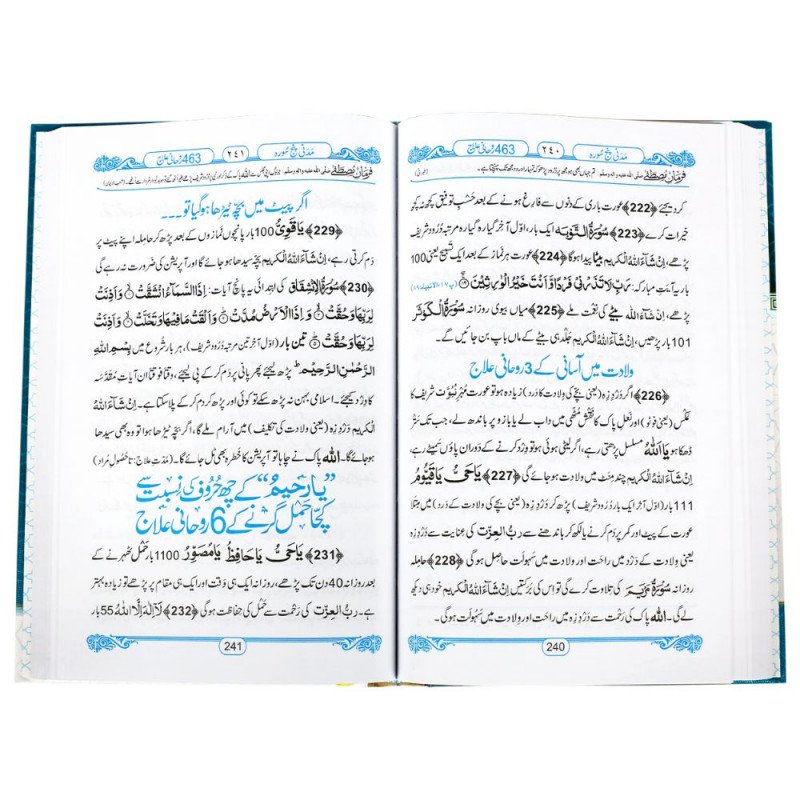 مَدَنی پنج سُورہ
٢٤٠
463 رُوحانی علاج
فرمانِ مُصطَفٰے صلی اللہ علیہ والہ وسلم: تم جہاں بھی ہو مجھ پر دُرُود پڑھو کہ تمہارا دُرُود مجھ تک پہنچتا ہے۔
کر دیجئے ﴿222﴾ عورت باری کے دنوں سے فارِغ ہونے کے بعد حَسْبِ توفیق کچھ نہ کچھ
خیرات کرے ﴿223﴾ سُوْرَۃُ التَّوْبَہ ایک بار، اوّل آخر گیارہ گیارہ مرتبہ دُرُود شریف
پڑھے، اِنْ شَآءَ اللہُ الْکَرِیم بیٹا پیدا ہوگا ﴿224﴾ عورت ہر نَماز کے بعد ایک تسبیح یعنی 100
بار یہ آیَتِ مبارکہ: رَبِّ لَا تَذَرْنِیْ فَرْدًا وَّ اَنْتَ خَیْرُ الْوٰرِثِیْنَ
پڑھے، اِنْ شَآءَ اللہ بیٹے کی نعمت ملے ﴿225﴾ میاں بیوی روزانہ سُوْرَۃُ الْکَوْثَر
101 بار پڑھیں، اِنْ شَآءَ اللہُ الْکَرِیم جلد ہی بیٹے کے ماں باپ بن جائیں گے۔
ولادت میں آسانی کے 3 روحانی علاج
﴿226﴾ اگر دَرْدِ زِہ (یعنی بچّے کی ولادت کا دَرْد) زیادہ ہو تو عورت مُہرِ نُبُوَّت شریف کا
عکس (یعنی فوٹو) اور نَعلِ پاک کا نَقْش مُٹھی میں داب لے یا بازو پر باندھ لے، جب تک سَتْر
ڈھکا ہو یَااَللہُ مسلسل پڑھتی رہے، اگر لیٹی ہوئی ہو تو وِرْد کرنے کے دَوران پاؤں سمیٹے رہے،
اِنْ شَآءَ اللہُ الْکَرِیم چند مِنَٹ میں ولادت ہو جائے گی ﴿227﴾ یَاحَیُّ یَاقَیُّوْمُ
111 بار (اوّل آخر ایک بار دُرُود شریف) پڑھ کر دَرْدِ زِہ (یعنی بچّے کی ولادت کے دَرْد) میں مبتلا
عورت کے پیٹ اور کمر پر دَم کرنے یا لکھ کر باندھنے سے رَبُّ الْعِزَّت کی عنایت سے دَرْدِ زِہ
یعنی ولادت کے دَرْد میں راحت اور ولادت میں سَہُولت حاصل ہوگی ﴿228﴾ حامِلہ
روزانہ سُوْرَۃُ مَرْیَم کی تلاوت کرے گی تو اس کی بَرَکتیں اِنْ شَآءَ اللہُ الْکَرِیم خود ہی دیکھ
لے گی۔ اللہ پاک کی رَحمت سے دَرْدِ زِہ میں راحت اور ولادت میں سَہُولت ہوگی۔
240
مَدَنی پنج سُورہ
٢٤١
463 رُوحانی علاج
فرمانِ مُصطَفٰے صلی اللہ علیہ والہ وسلم:
اگر پیٹ میں بچّہ ٹیڑھا ہو گیا تو۔۔۔
﴿229﴾ یَاقَوِیُّ 100 بار پانچوں نَمازوں کے بعد پڑھ کر حامِلہ اپنے پیٹ پر
دَم کرتی رہے، اِنْ شَآءَ اللہُ الْکَرِیم بچّہ سیدھا ہو جائے گا اور آپریشن کی ضَرورت نہ رہے گی
﴿230﴾ سُوْرَۃُ الْاِنْشِقَاق کی ابتدائی یہ پانچ آیات: اِذَا السَّمَآءُ انْشَقَّتْ ۙ وَ اَذِنَتْ
لِرَبِّهَا وَ حُقَّتْ ۙ وَ اِذَا الْاَرْضُ مُدَّتْ ۙ وَ اَلْقَتْ مَا فِیْهَا وَ تَخَلَّتْ ۙ وَ اَذِنَتْ
لِرَبِّهَا وَ حُقَّتْ ؕ تین بار (اوّل آخر تین مرتبہ دُرُود شریف)، ہر بار شُروع میں بِسْمِ اللہِ
الرَّحْمٰنِ الرَّحِیْمِ پڑھ لیجئے پھر پانی پر دَم کر کے پی لیجئے، وقتاً فوقتاً ان آیاتِ مُقدّسہ
کا وِرْد کیجئے۔ اسلامی بہن نہ پڑھ سکے تو کوئی اور پڑھ کر دَم کر کے پلا سکتا ہے۔ اِنْ شَآءَ اللہُ
الْکَرِیم دَرْدِ زِہ (یعنی ولادت کی تکلیف) میں آرام ملے گا، اگر بچّہ ٹیڑھا ہوا تو وہ بھی سیدھا
ہو جائے گا۔ اللہ پاک نے چاہا تو آپریشن کا خطرہ بھی ٹل جائے گا۔ (مُدّتِ علاج: تا حُصُولِ مُراد)
”یارَحِیْمُ“ کے چھ حُروف کی نِسبت سے
کچا حمل گرنے کے 6 روحانی علاج
﴿231﴾ یَاحَیُّ یَاحَافِظُ یَامُصَوِّرُ 1100 بار حَمْل ٹھہرنے کے
بعد روزانہ 40 دن تک پڑھے، روزانہ ایک ہی وَقت اور ایک ہی مقام پر پڑھے تو زیادہ بہتر
ہے۔ رَبُّ الْعِزَّت کی رَحمت سے حَمْل کی حِفاظت ہوگی ﴿232﴾ لَآ اِلٰہَ اِلَّا اللہُ 55 بار
241